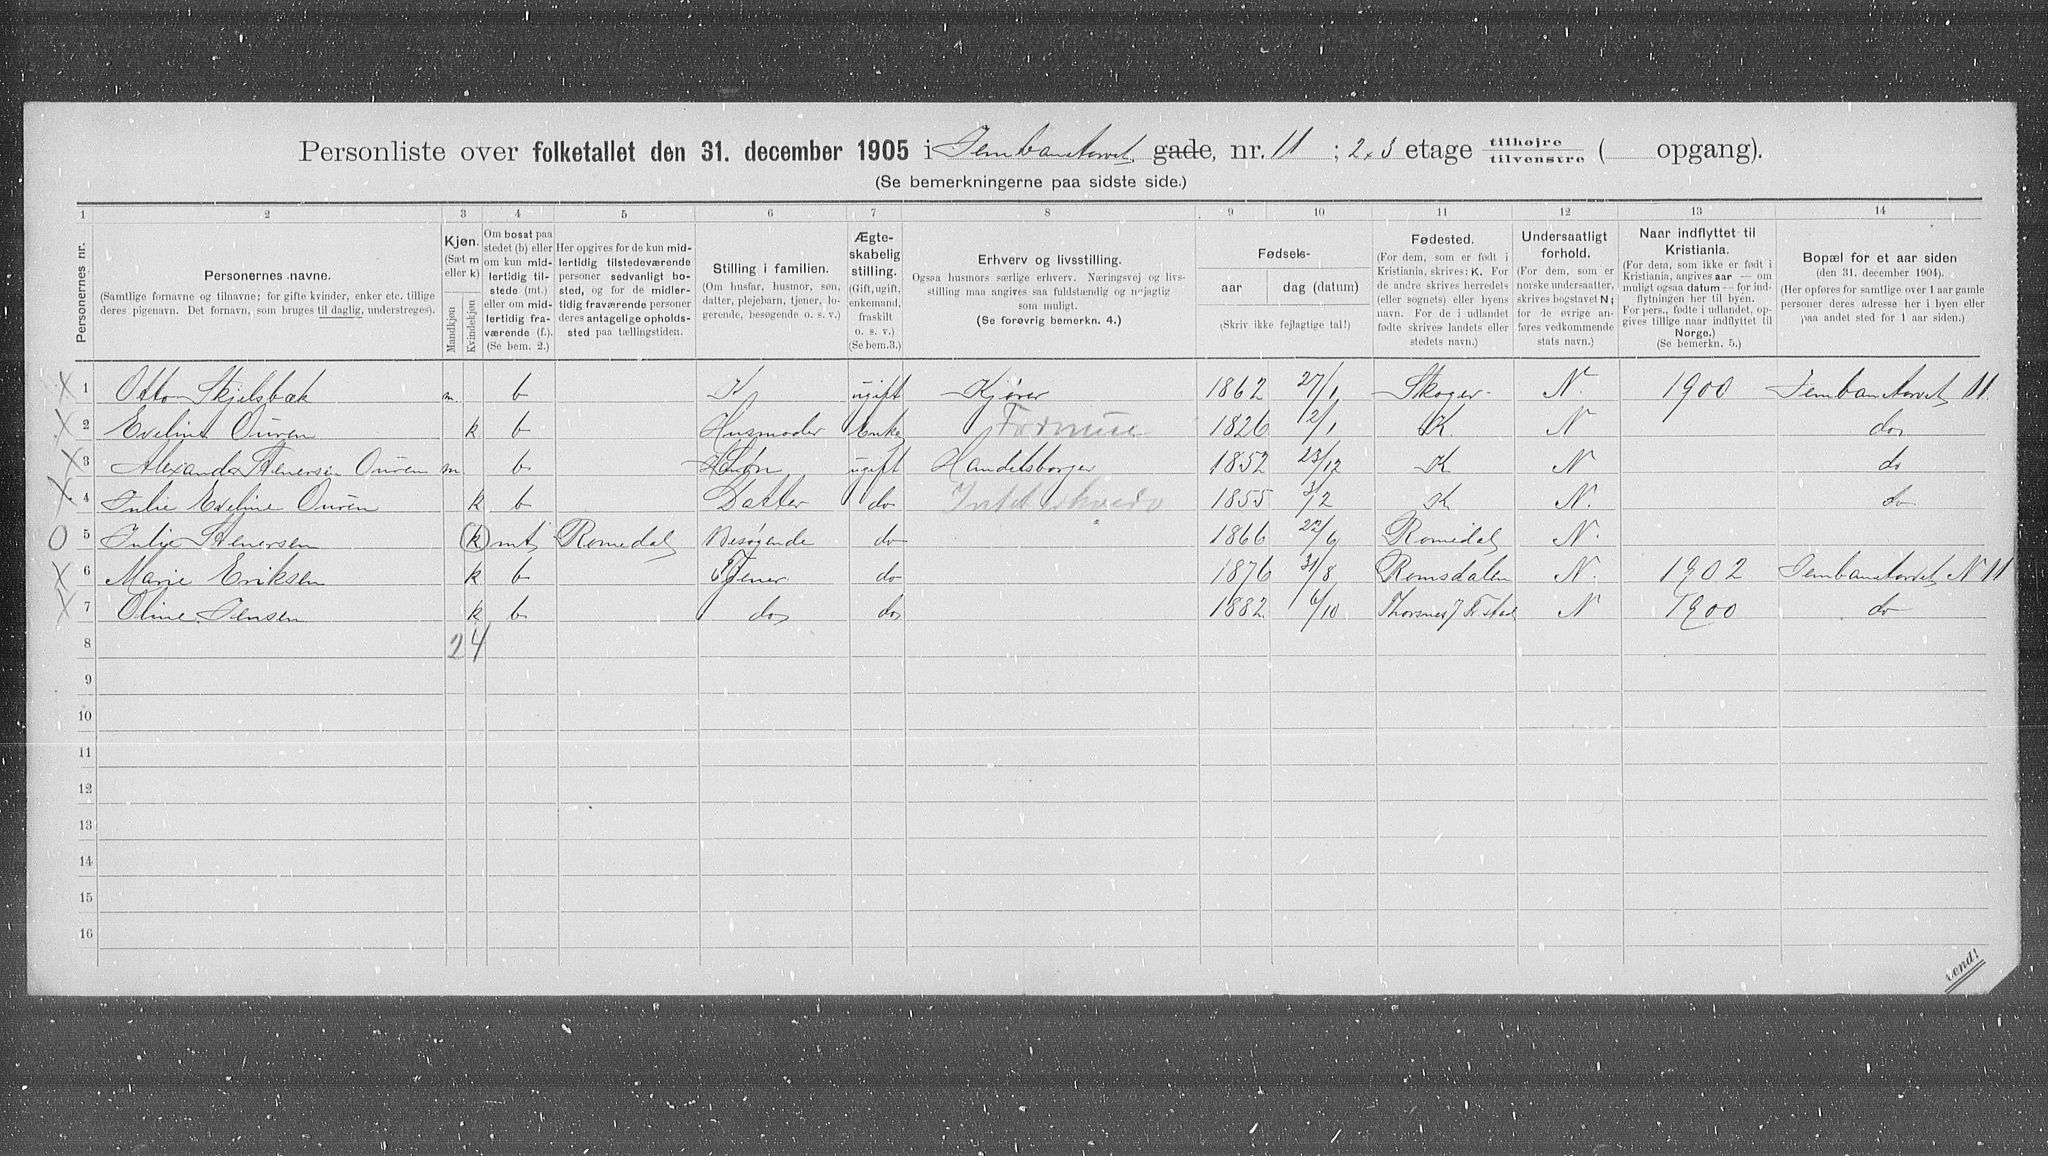 Personliste over folketallet den 31. december 1905 i Jernbanetorvet gade, nr. 11 ; 2 x 3 etage tilhøjre tilvenstre ( opgang).
(Se bemerkningerne paa sidste side.)
1 2 3 4 5 6 7 8 9 10 11 12 13 14
Personernes nr.
Personernes navne.
(Samtlige fornavne og tilnavne; for gifte kvinder, enker etc. tillige deres pigenavn. Det fornavn, som bruges til daglig, understreges).
Kjøn. (Sæt m eller k)
Mandkjøn Kvindekjøn
Om bosat paa stedet (b) eller om kun midlertidig tilstede (mt.) eller om midlertidig fraværende (f.). (Se bem. 2.)
Her opgives for de kun midlertidig tilstedeværende personer sedvanligt bosted, og for de midlertidig fraværende personer deres antagelige opholdssted paa tællingstiden.
Stilling i familien.
(Om husfar, husmor, søn, datter, plejebarn, tjener, logerende, besøgende o. s. v.)
Ægteskabelig stilling. (Gift, ugift, enkemand, fraskilt o. s. v.) (Se bem.3.)
Erhverv og livsstilling.
Ogsaa husmors særlige erhverv. Næringsvej og livsstilling maa angives saa fuldstændig og nøjagtig som muligt.
(Se forøvrig bemerkn. 4.)
Fødsels-
aar dag (datum)
(Skriv ikke fejlagtige tal!)
Fødested.
(For dem, som er født i Kristiania, skrives: K. For de andre skrives herredets (eller sognets) eller byens navn. For de i udlandet fødte skrives landets eller stedets navn.)
Undersaatligt forhold.
(For dem, som er norske undersaatter, skrives bogstavet N; for de øvrige anføres vedkommende stats navn.)
Naar indflyttet til Kristiania.
(For dem, som ikke er født i Kristiania, angives aar — om muligt ogsaa datum — for indflytningen her til byen. For pers., fødte i udlandet, opgives tillige naar indflyttet til Norge.)
(Se bemerkn. 5.)
Bopæl for et aar siden
(den 31. december 1904).
(Her opføres for samtlige over 1 aar gamle personer deres adresse her i byen eller paa andet sted for 1 aar siden.)
X 1 Otto Skjelsbæk m. b K ugift Kjører 1862 27/1 Skoger N. 1900 Jernbanetorvet 11.
X 2 Eveline Ouren k b Husmoder Enke Formue 1826 12/1 K. N do
X 3 Alexander Stenersen Ouren m b Søn ugift Handelsborger 1852 23/12 K N do
X 4 Julie Eveline Ouren k b Datter do Intet erhverv 1855 3/2 K N. do
O 5 Julie Stenersen k mt Romedal Besøgende do 1866 22/6 Romedal N.
X 6 Marie Eriksen k b Tjener do 1876 31/8 Romsdalen N. 1902 Jernbanetorvet N 11
X 7 Oline Jensen k b do do 1882 6/10 Thorsnes / Fr.stad N 1900 do
8 2 4
9
10
11
12
13
14
15
16
vend!